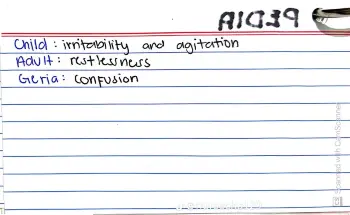 PEDIA
Child : irritability and agitation
Adult : restlessness
Geria : confusion
Scanned with CamScanner